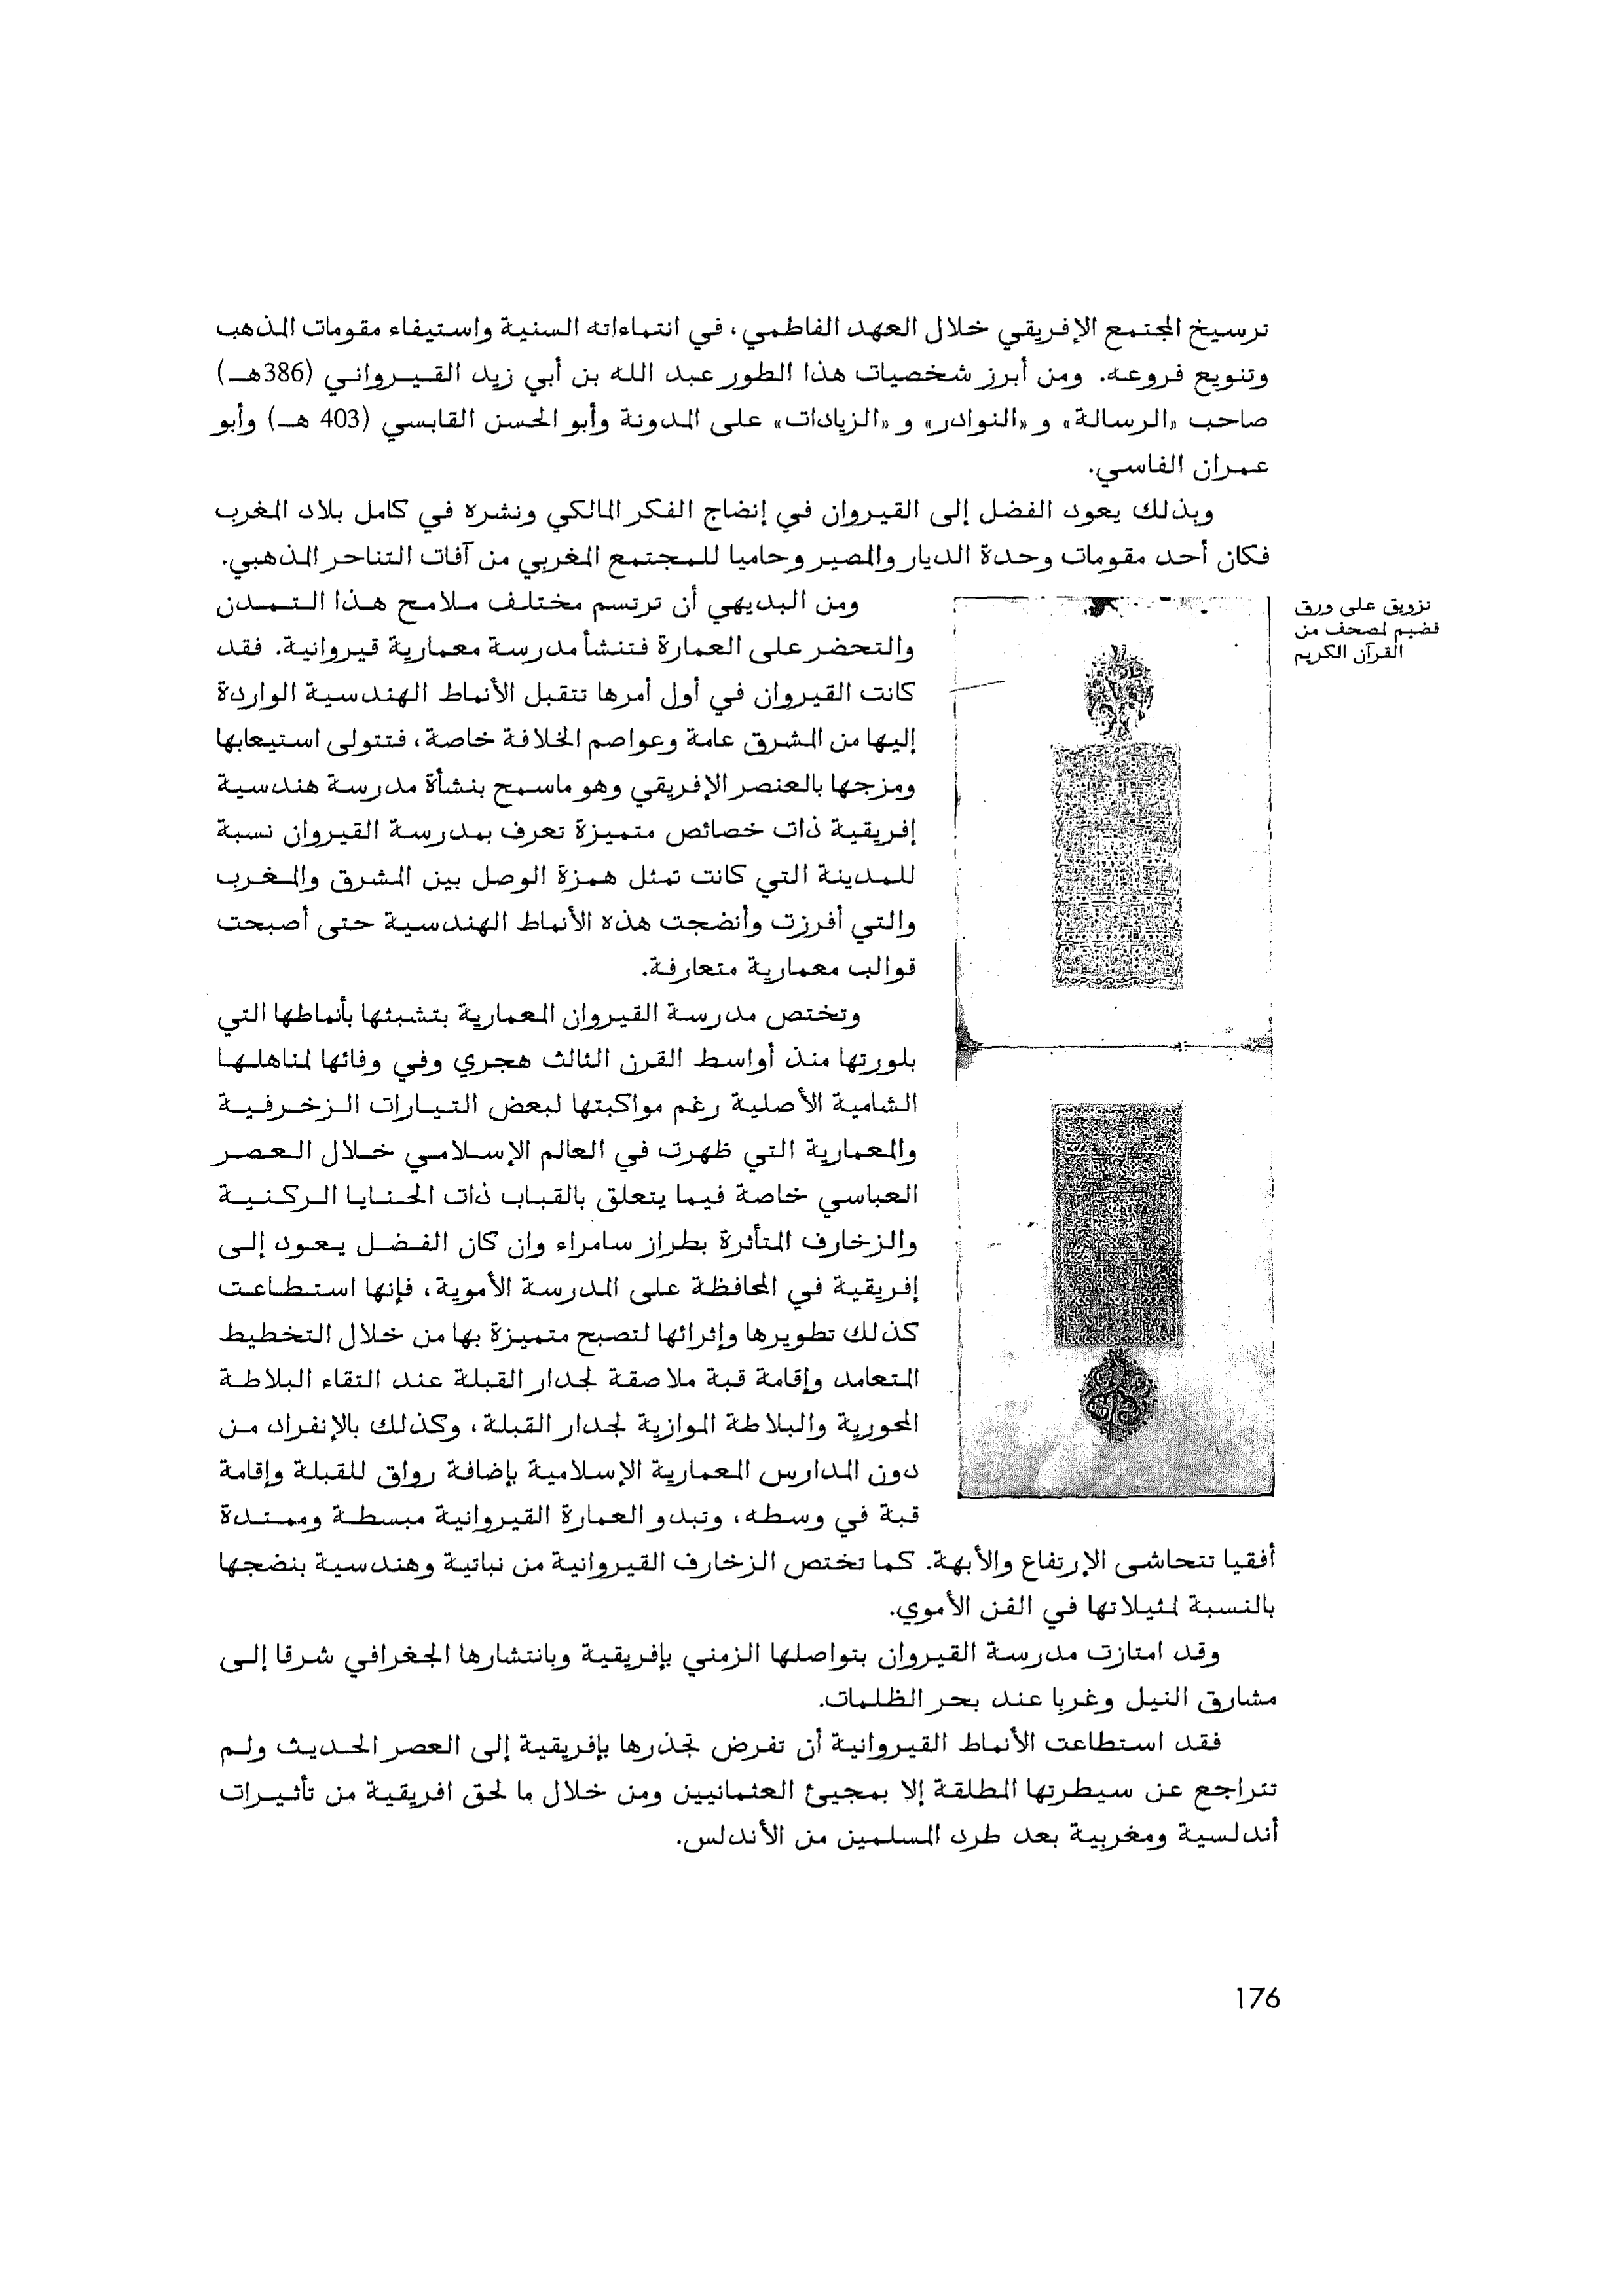 ترسيخ المجتمع الإفريقي خلال العهد الفاطمي، في انتماءاته السنية واستيفاء مقومات المذهب
وتنويع فروعه. ومن أبرز شخصيات هذا الطور عبد الله بن أبي زيد القيرواني (386هـ)
صاحب «الرسالة» و «النوادر» و «الزيادات» على المدونة وأبو الحسن القابسي (403 هـ) وأبو
عمران الفاسي.
وبذلك يعود الفضل إلى القيروان في إنضاج الفكر المالكي ونشره في كامل بلاد المغرب
فكان أحد مقومات وحدة الديار والمصير وحاميا للمجتمع المغربي من آفات التناحر المذهبي.
ومن البديهي أن ترتسم مختلف ملامح هذا التمدن
والتحضر على العمارة فتنشأ مدرسة معمارية قيروانية. فقد
كانت القيروان في أول أمرها تتقبل الأنماط الهندسية الواردة
إليها من المشرق عامة وعواصم الخلافة خاصة، فتتولى استيعابها
ومزجها بالعنصر الإفريقي وهو ماسمح بنشأة مدرسة هندسية
إفريقية ذات خصائص متميزة تعرف بمدرسة القيروان نسبة
للمدينة التي كانت تمثل همزة الوصل بين المشرق والمغرب
والتي أفرزت وأنضجت هذه الأنماط الهندسية حتى أصبحت
قوالب معمارية متعارفة.
وتختص مدرسة القيروان المعمارية بتشبثها بأنماطها التي
بلورتها منذ أواسط القرن الثالث هجري وفي وفائها لمناهلها
الشامية الأصلية رغم مواكبتها لبعض التيارات الزخرفية
والمعمارية التي ظهرت في العالم الإسلامي خلال العصر
العباسي خاصة فيما يتعلق بالقباب ذات الحنايا الركنية
والزخارف المتأثرة بطراز سامراء وإن كان الفضل يعود إلى
إفريقية في المحافظة على المدرسة الأموية، فإنها استطاعت
كذلك تطويرها وإثرائها لتصبح متميزة بها من خلال التخطيط
المتعامد وإقامة قبة ملاصقة لجدار القبلة عند التقاء البلاطة
المحورية والبلاطة الموازية لجدار القبلة، وكذلك بالإنفراد من
دون المدارس المعمارية الإسلامية بإضافة رواق للقبلة وإقامة
قبة في وسطه، وتبدو العمارة القيروانية مبسطة وممتدة
أفقيا تتحاشى الإرتفاع والأبهة. كما تختص الزخارف القيروانية من نباتية وهندسية بنضجها
بالنسبة لمثيلاتها في الفن الأموي.
وقد امتازت مدرسة القيروان بتواصلها الزمني بإفريقية وبانتشارها الجغرافي شرقا إلى
مشارق النيل وغربا عند بحر الظلمات.
فقد استطاعت الأنماط القيروانية أن تفرض تجذرها بإفريقية إلى العصر الحديث ولم
تتراجع عن سيطرتها المطلقة إلا بمجيئ العثمانيين ومن خلال ما لحق افريقية من تأثيرات
أندلسية ومغربية بعد طرد المسلمين من الأندلس.
تزويق على ورق
قضيم لمصحف من
القرآن الكريم
176